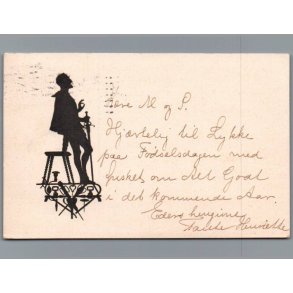 Kære M og P.
Hjærtelig til Lykke
paa Födselsdagen med
ønsket om Alt Godt
i det kommende Aar.
Eders hengivne
Tante Henriette